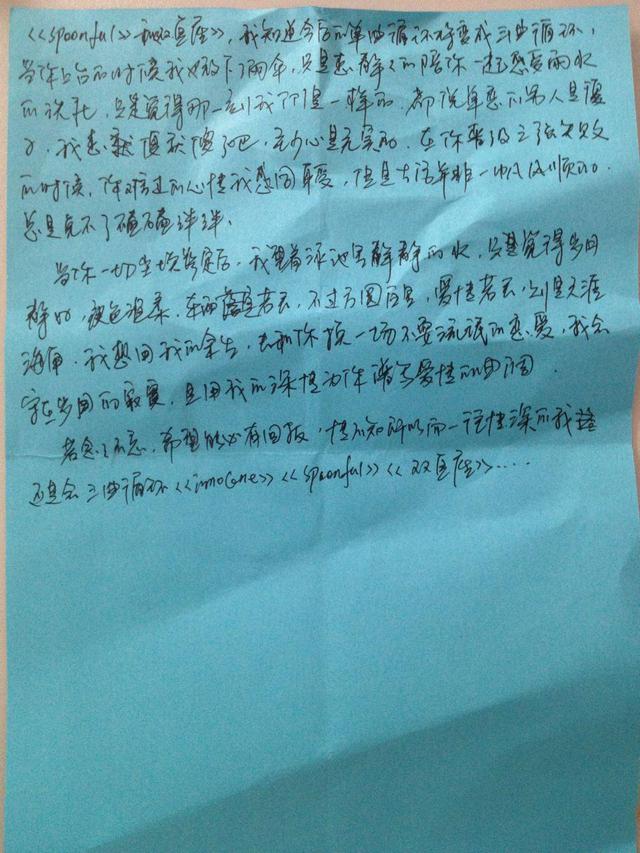 <<spoonful>>和双鱼座>>,我知道今后的单曲循环将变成三曲循环,
当你上台的时候我放下了雨伞,只是想静静的陪你一起感受雨水
的洗礼,只是觉得那一刻我们是一样的.都说单恋的男人是傻
子,我想就傻就傻了吧,至少心是充实的.在你晋级之张失败
的时候,你难过的心情我感同身受,但是生活并非一帆风顺的.
总是免不了磕磕绊绊.
当你一切尘埃落定后,我望着泳池里静静的水,只是觉得岁月
静好,夜色温柔,不过方圆百里,爱情若云,则是天涯
海角.我想用我的余生,去和你换一场不耍流氓的恋爱,我会
在岁月的,且用我的深情为你谱写爱情的曲调.
若念念不忘,希望能必有回报,情不知所以而一往情深的我
还是会三曲循环<<innocence>><<spoonful>><<双鱼座>>....